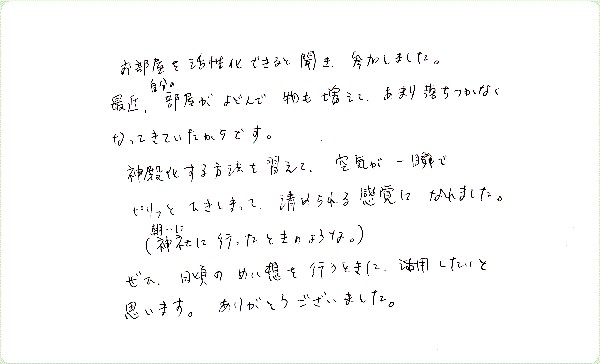 お部屋を活性化できると聞き、参加しました。
最近、自分の部屋がよどんで物も増えて、あまり落ちつかなく
なってきていたからです。
神殿化する方法を習えて、空気が一瞬で
ピリッとひきしまって、清められる感覚になれました。
(朝一に神社に行ったときのような。)
ぜひ、日頃のめい想を行うときに、活用したいと
思います。ありがとうございました。